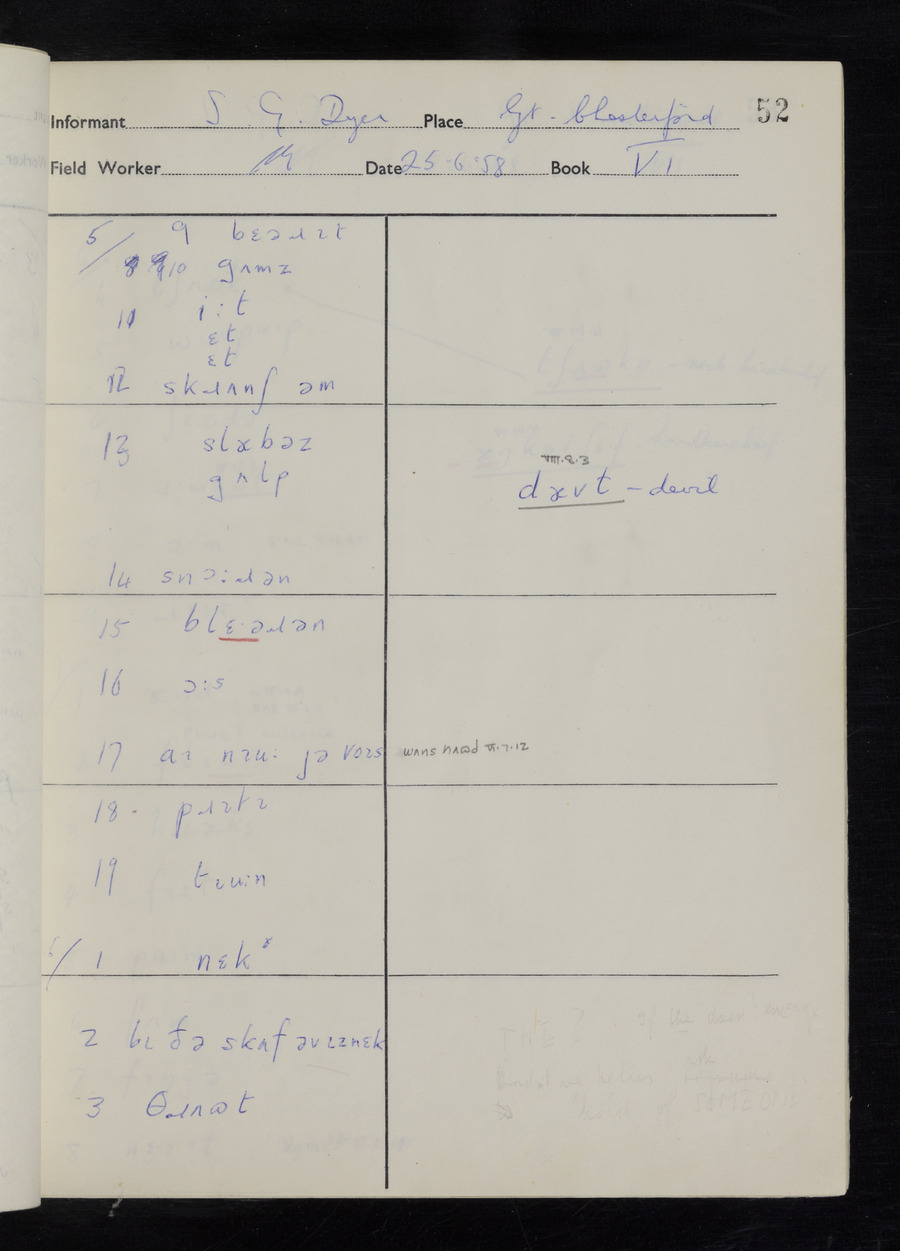 Informant S. G. Dyer Place Gt. Chesterford 52
Field Worker Date 25·6·58 Book VI
5/ 9 bɛəɹɪt
10 gʌmz
11 i:t
ɛt
ɛt
12 skɹʌnʃ əm
13 slæbəz
gʌlp
VIII.8.3
dævɫ – devil
14 snɔ:ɹən
15 blɛ·əɹən
16 ɔ:s
17 aɪ nɪu· jə vɔɪs wʌns nʌɷd VI.7.12
18· pɹɪtɪ
19 tɪu:n
6/ 1 nɛk
2 bɪ ðə skɹʌf əv ɪznɛk
3 θɹʌɷt